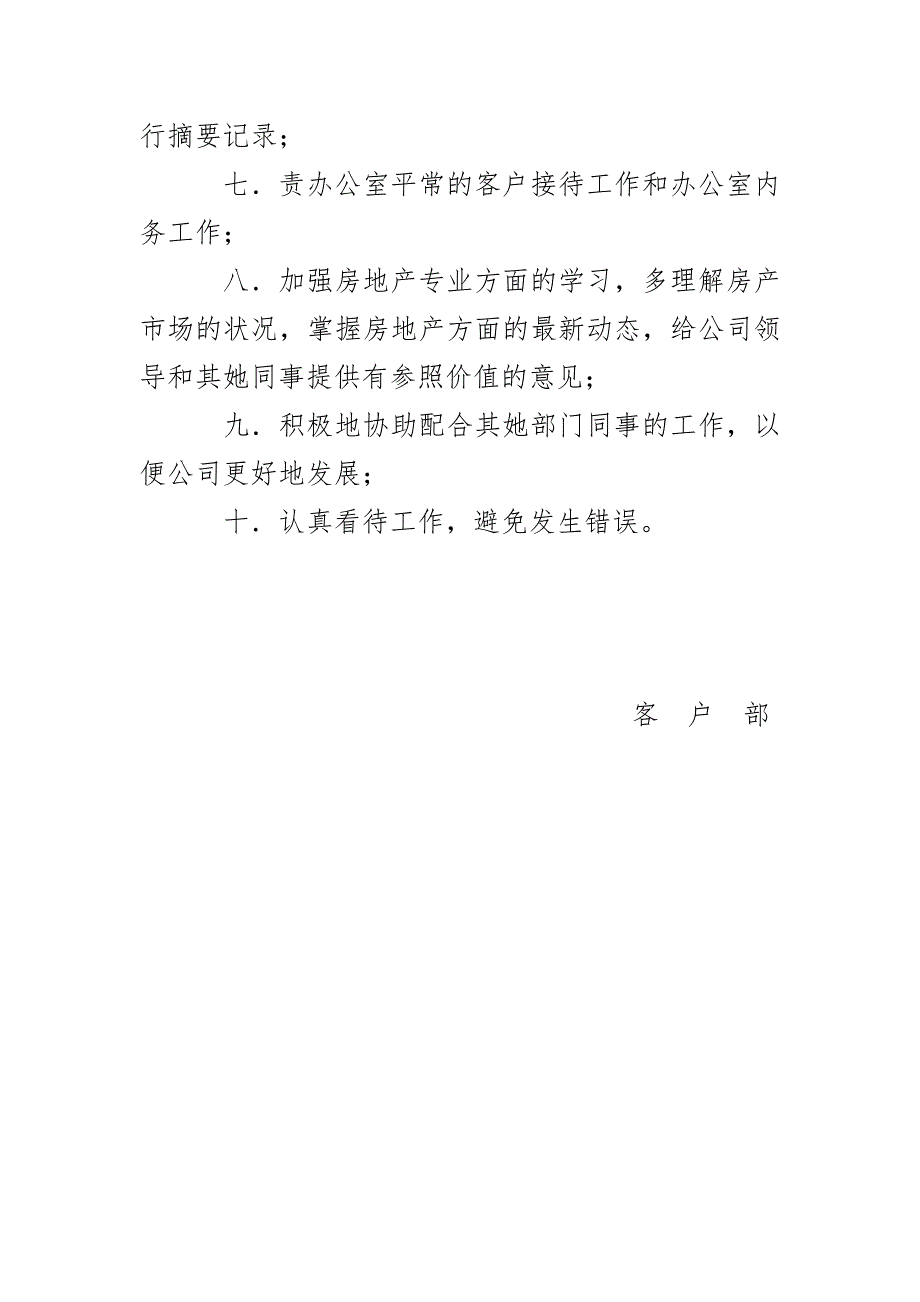 行摘要记录；
七．责办公室平常的客户接待工作和办公室内
务工作；
八．加强房地产专业方面的学习，多理解房产
市场的状况，掌握房地产方面的最新动态，给公司领
导和其她同事提供有参照价值的意见；
九．积极地协助配合其她部门同事的工作，以
便公司更好地发展；
十．认真看待工作，避免发生错误。
客 户 部